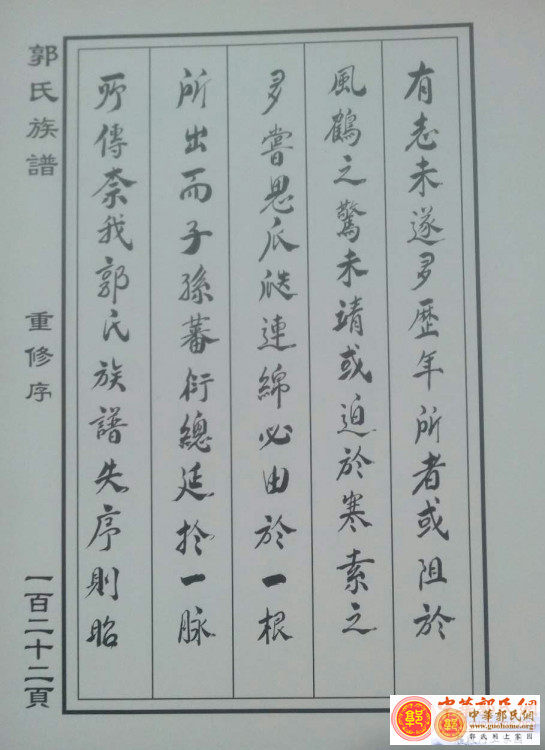 有志未遂多歷年所者或阻於
風鶴之驚未靖或迫於寒索之
多嘗思瓜瓞連綿必由於一根
所出而子孫蕃衍總延於一脈
所傳奈我郭氏族譜失序則昭
郭氏族譜
重修序
一百二十二頁
中華郭氏網
www.guohome.org
郭氏網上家園